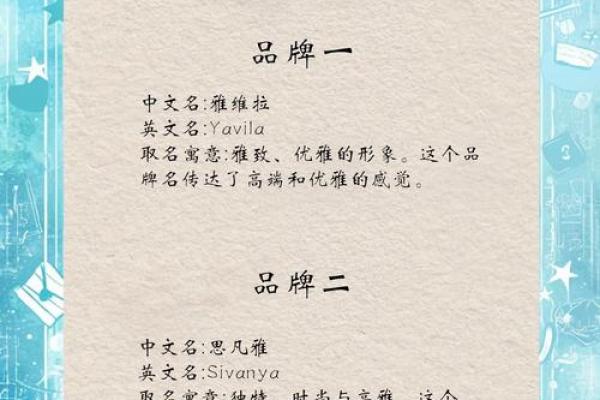 品牌一
中文名:雅维拉
英文名:Yavila
取名寓意:雅致、优雅的形象。这个品
牌名传达了高端和优雅的感觉。
品牌二
中文名:思凡雅
英文名:Sivanya
取名寓意:独特、时尚与高雅。这个